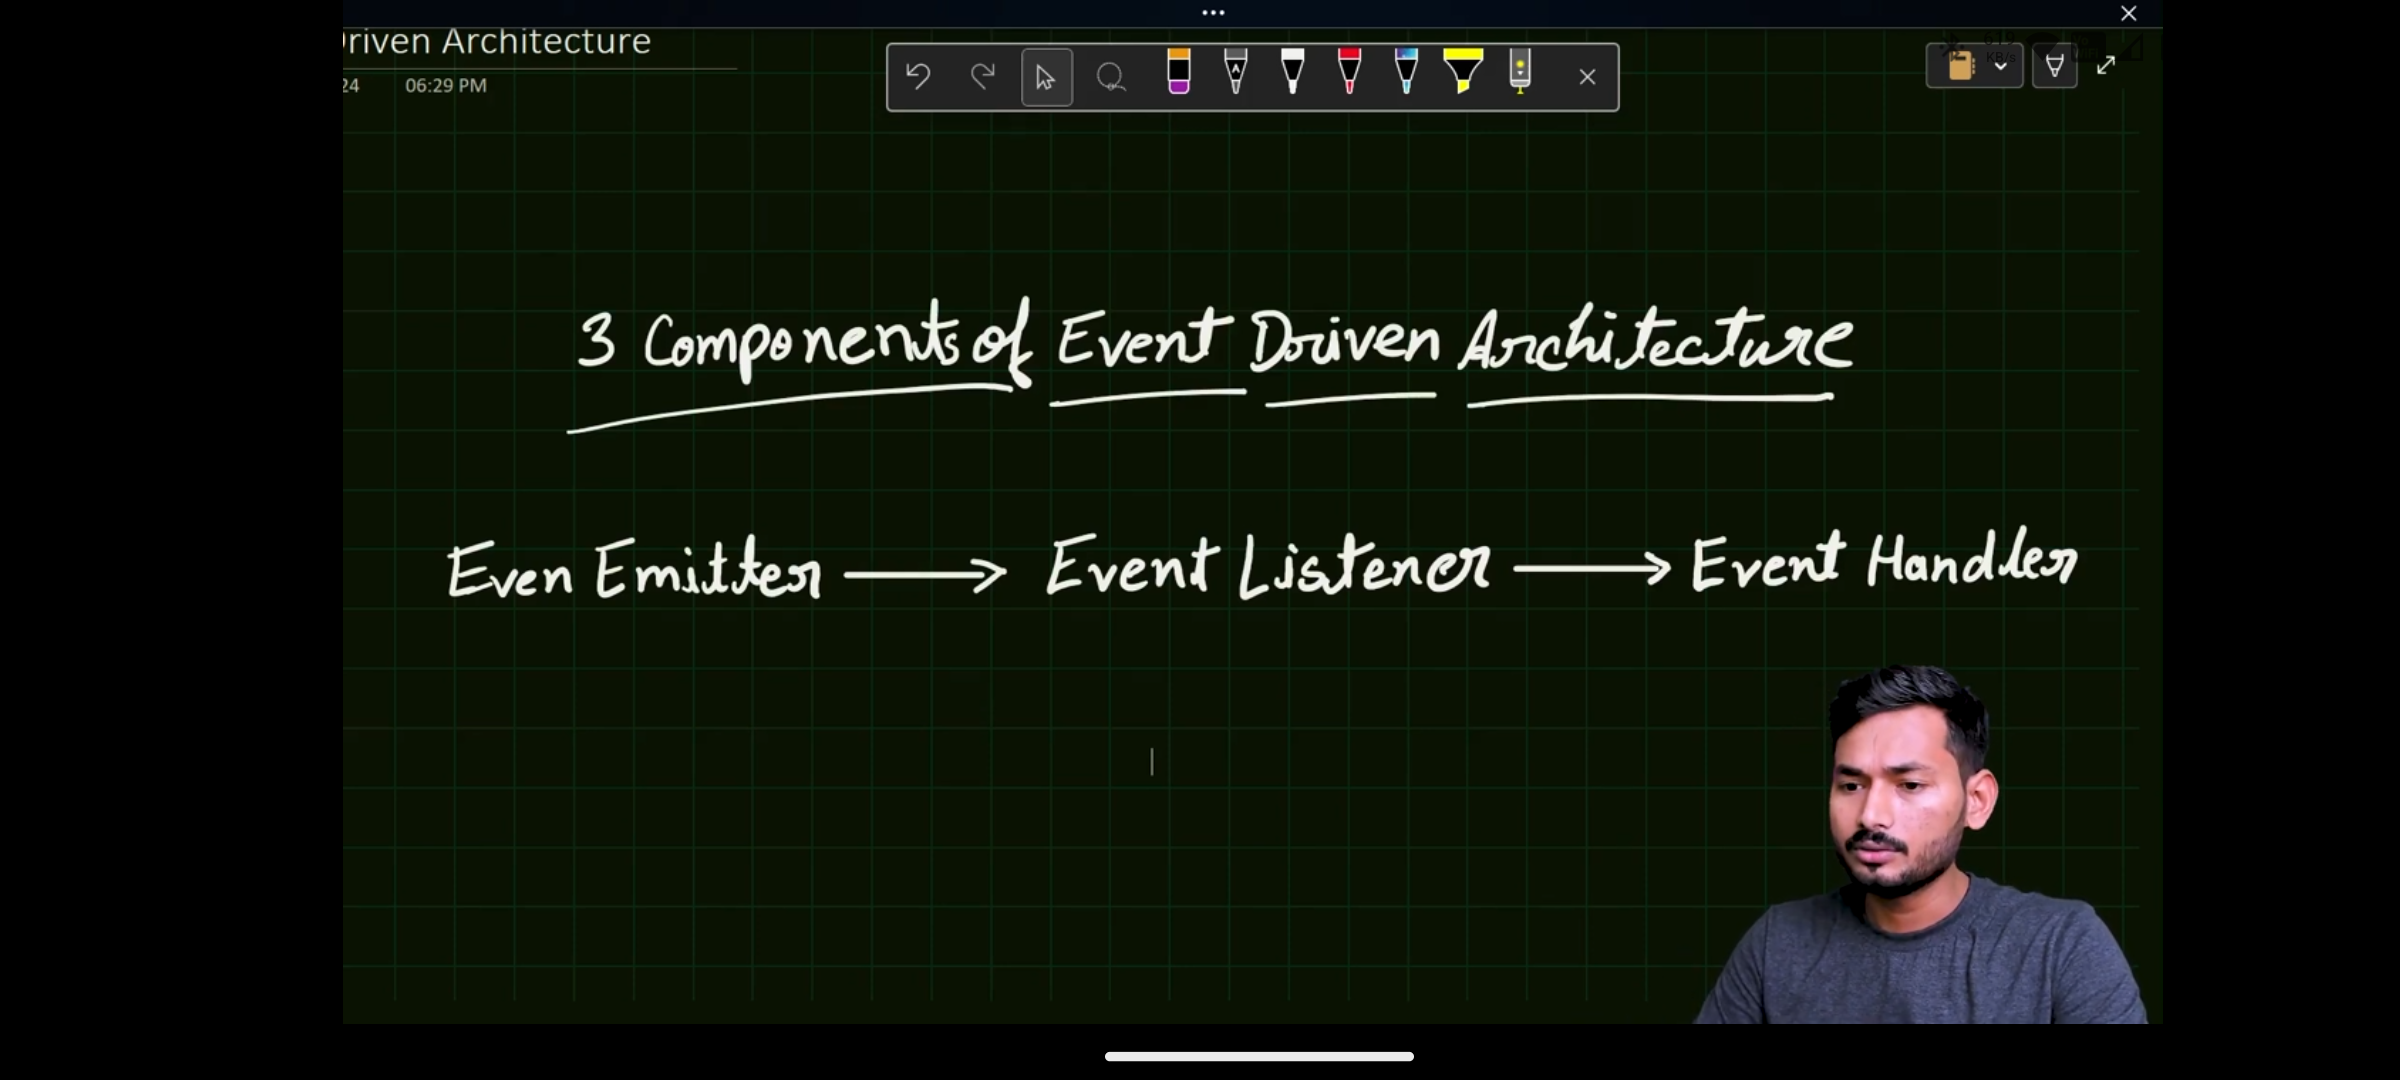 Driven Architecture
24 06:29 PM
3 Components of Event Driven Architecture
Even Emitter → Event Listener → Event Handler